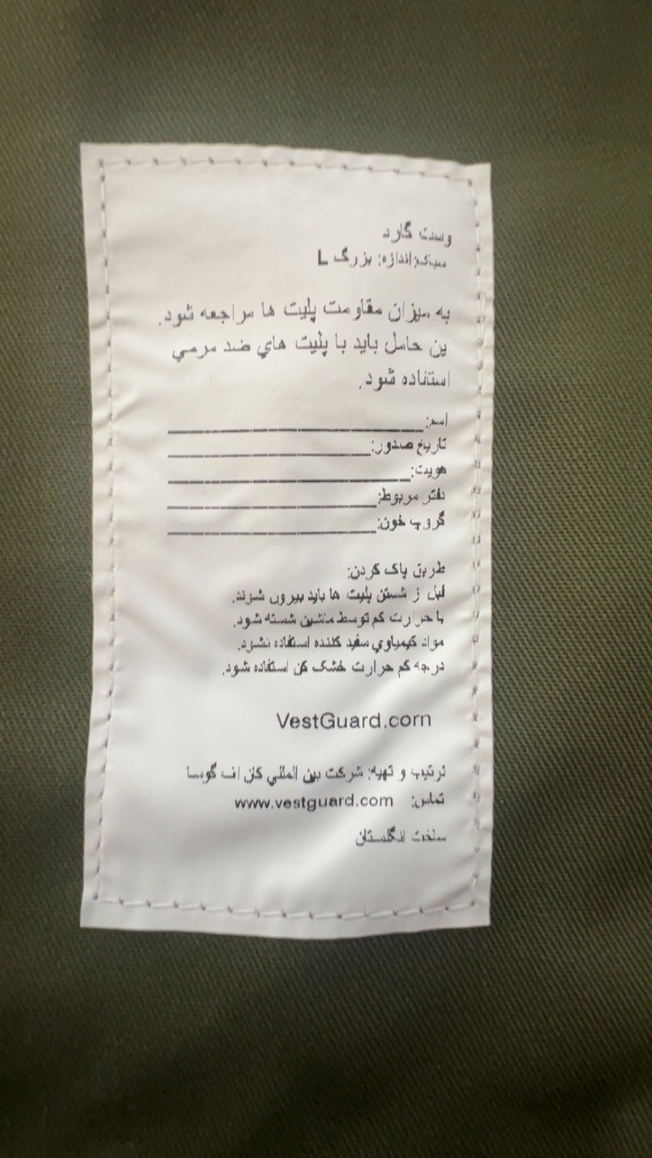 وست گارد
سبک:اندازه: بزرگ L
به میزان مقاومت پلیت ها مراجعه شود.
ین حامل باید با پلیت هاي ضد مرمي
استفاده شود.
اسم:
تاریخ صدور:
هویت:
دفتر مربوط:
گروپ خون:
طریق پاک کردن:
قبل ز شستن پلیت ها باید بیرون شوند.
با حرارت کم توسط ماشین شسته شود.
مواد کیمیاوي سفید کننده استفاده نشود.
درجه کم حرارت خشک کن استفاده شود.
VestGuard.com
ترتیب و تهیه: شرکت بین المللي کان اف گوسا
تماس: www.vestguard.com
ساخت انگلستان